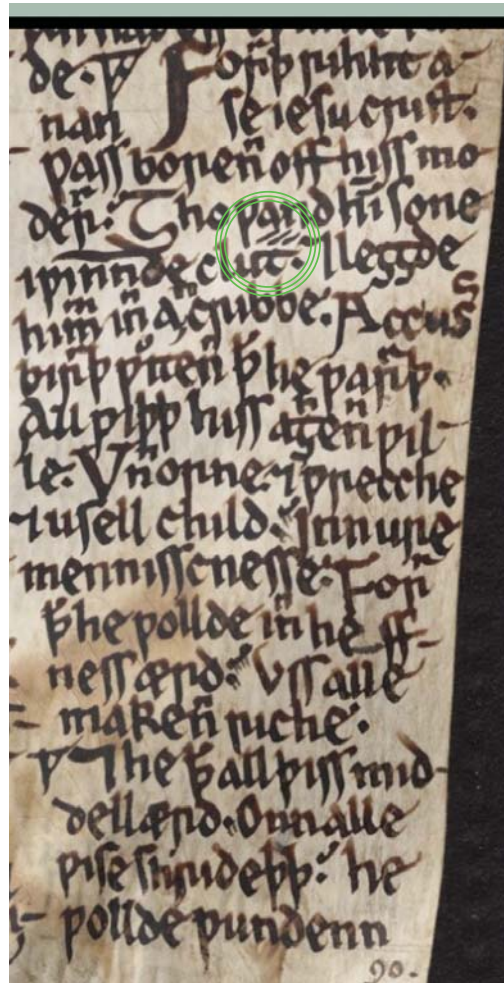 de. ꝥ Forr̃þ rihht a-
nan se iesu crist.
ƿass borenn̄ off hiss mo-
derr̄. Ꝥho ƿand him̄ sone
i ƿinnde clut. ⁊ leggde
him̄ in̄ an cribbe. Acc uss
birr̄þ ƿitenn̄ ꝥ he ƿarr̄þ.
All ƿiþþ hiss aȝhen̄ ƿil-
le. Vn̄orne. ⁊ ƿrecche
⁊ usell child. Inn ure
mennisscnesse. Forr̄
ꝥ he ƿollde in̄ heff-
ness ærd. Vss alle
maken̄ riche.
⁊ he ꝥ all þiss mid-
dellærd. Onn alle
ƿise shrideþþ. he
ƿollde ƿundenn
90.